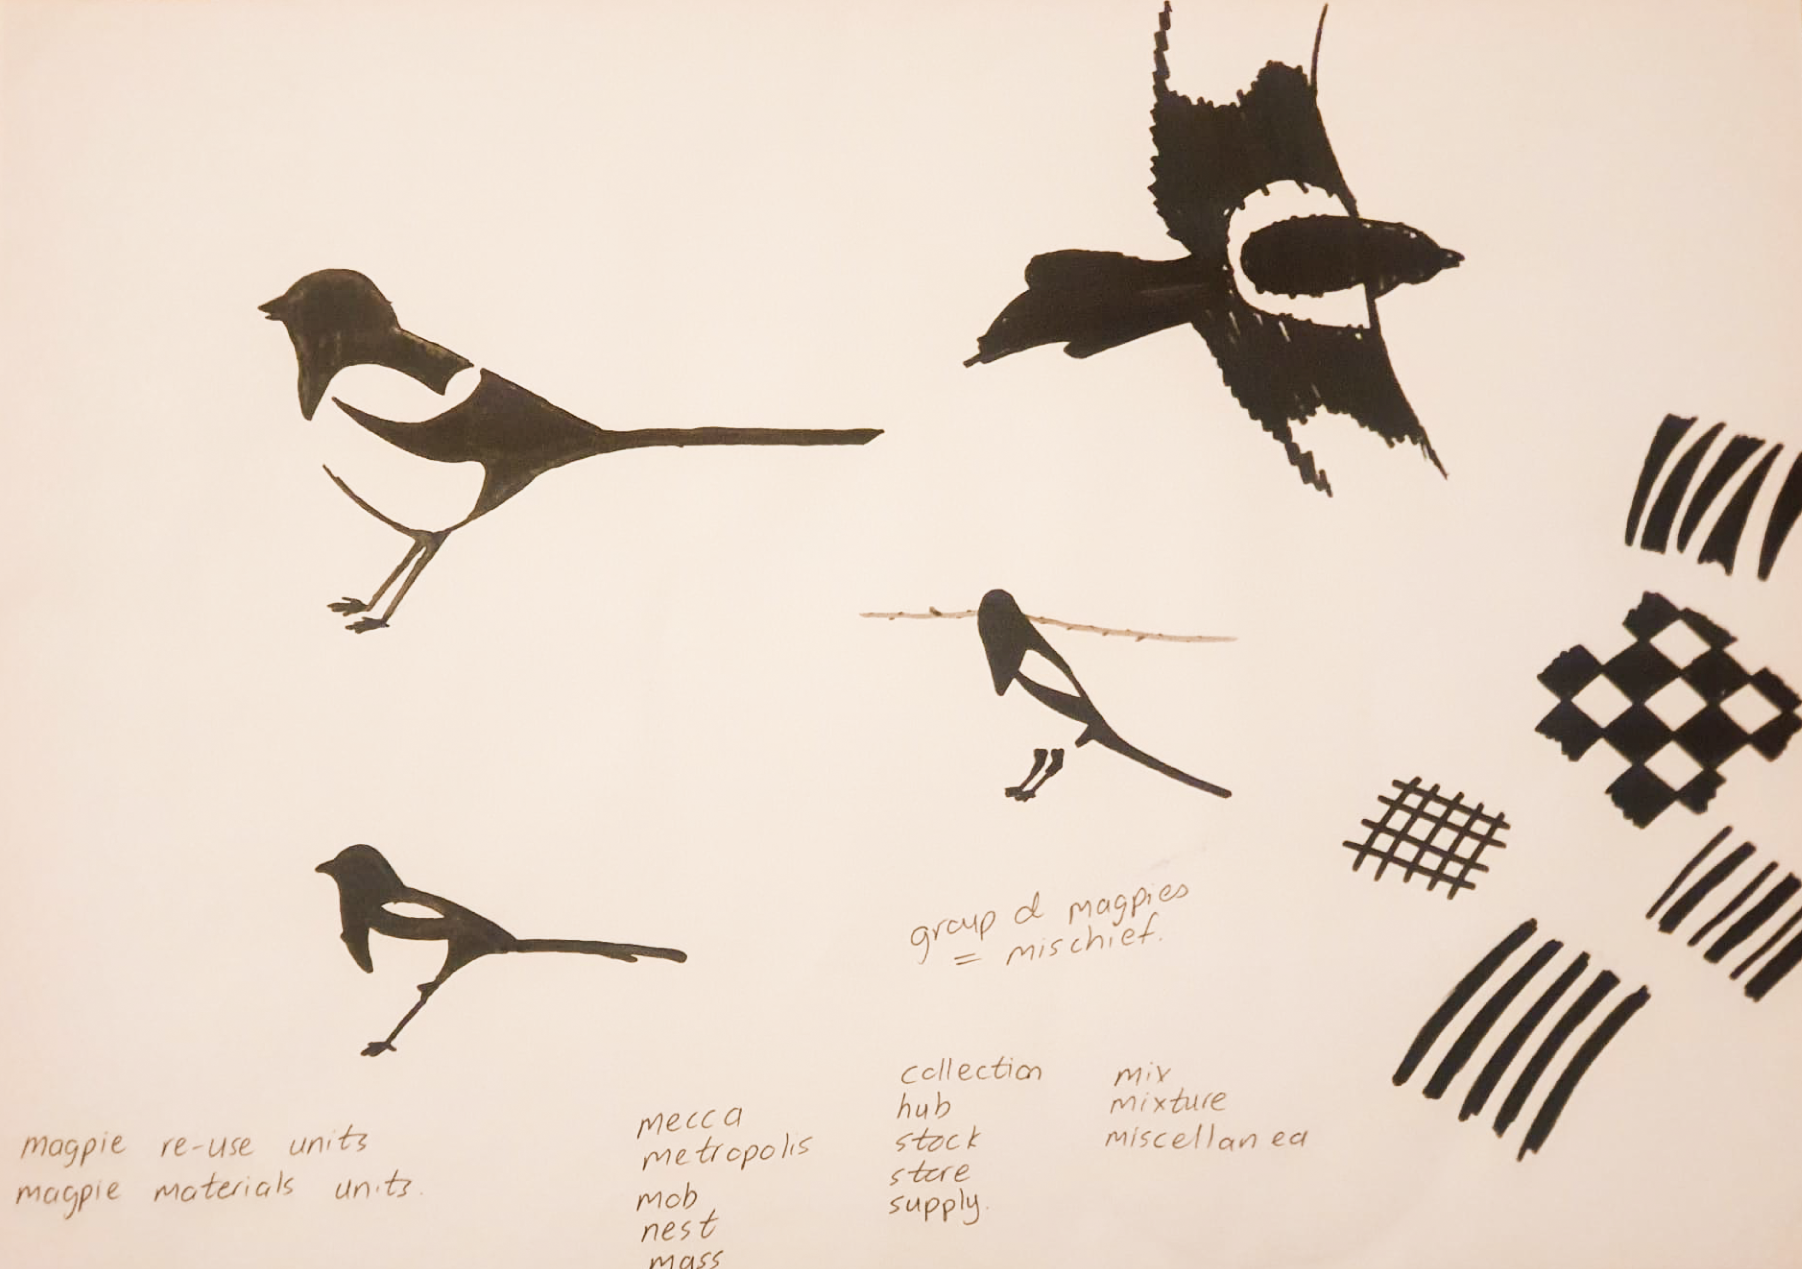 group of magpies
= mischief.
magpie re-use units
magpie materials units.
mecca
metropolis
mob
nest
mass
collection
hub
stock
store
supply.
mix
mixture
miscellanea